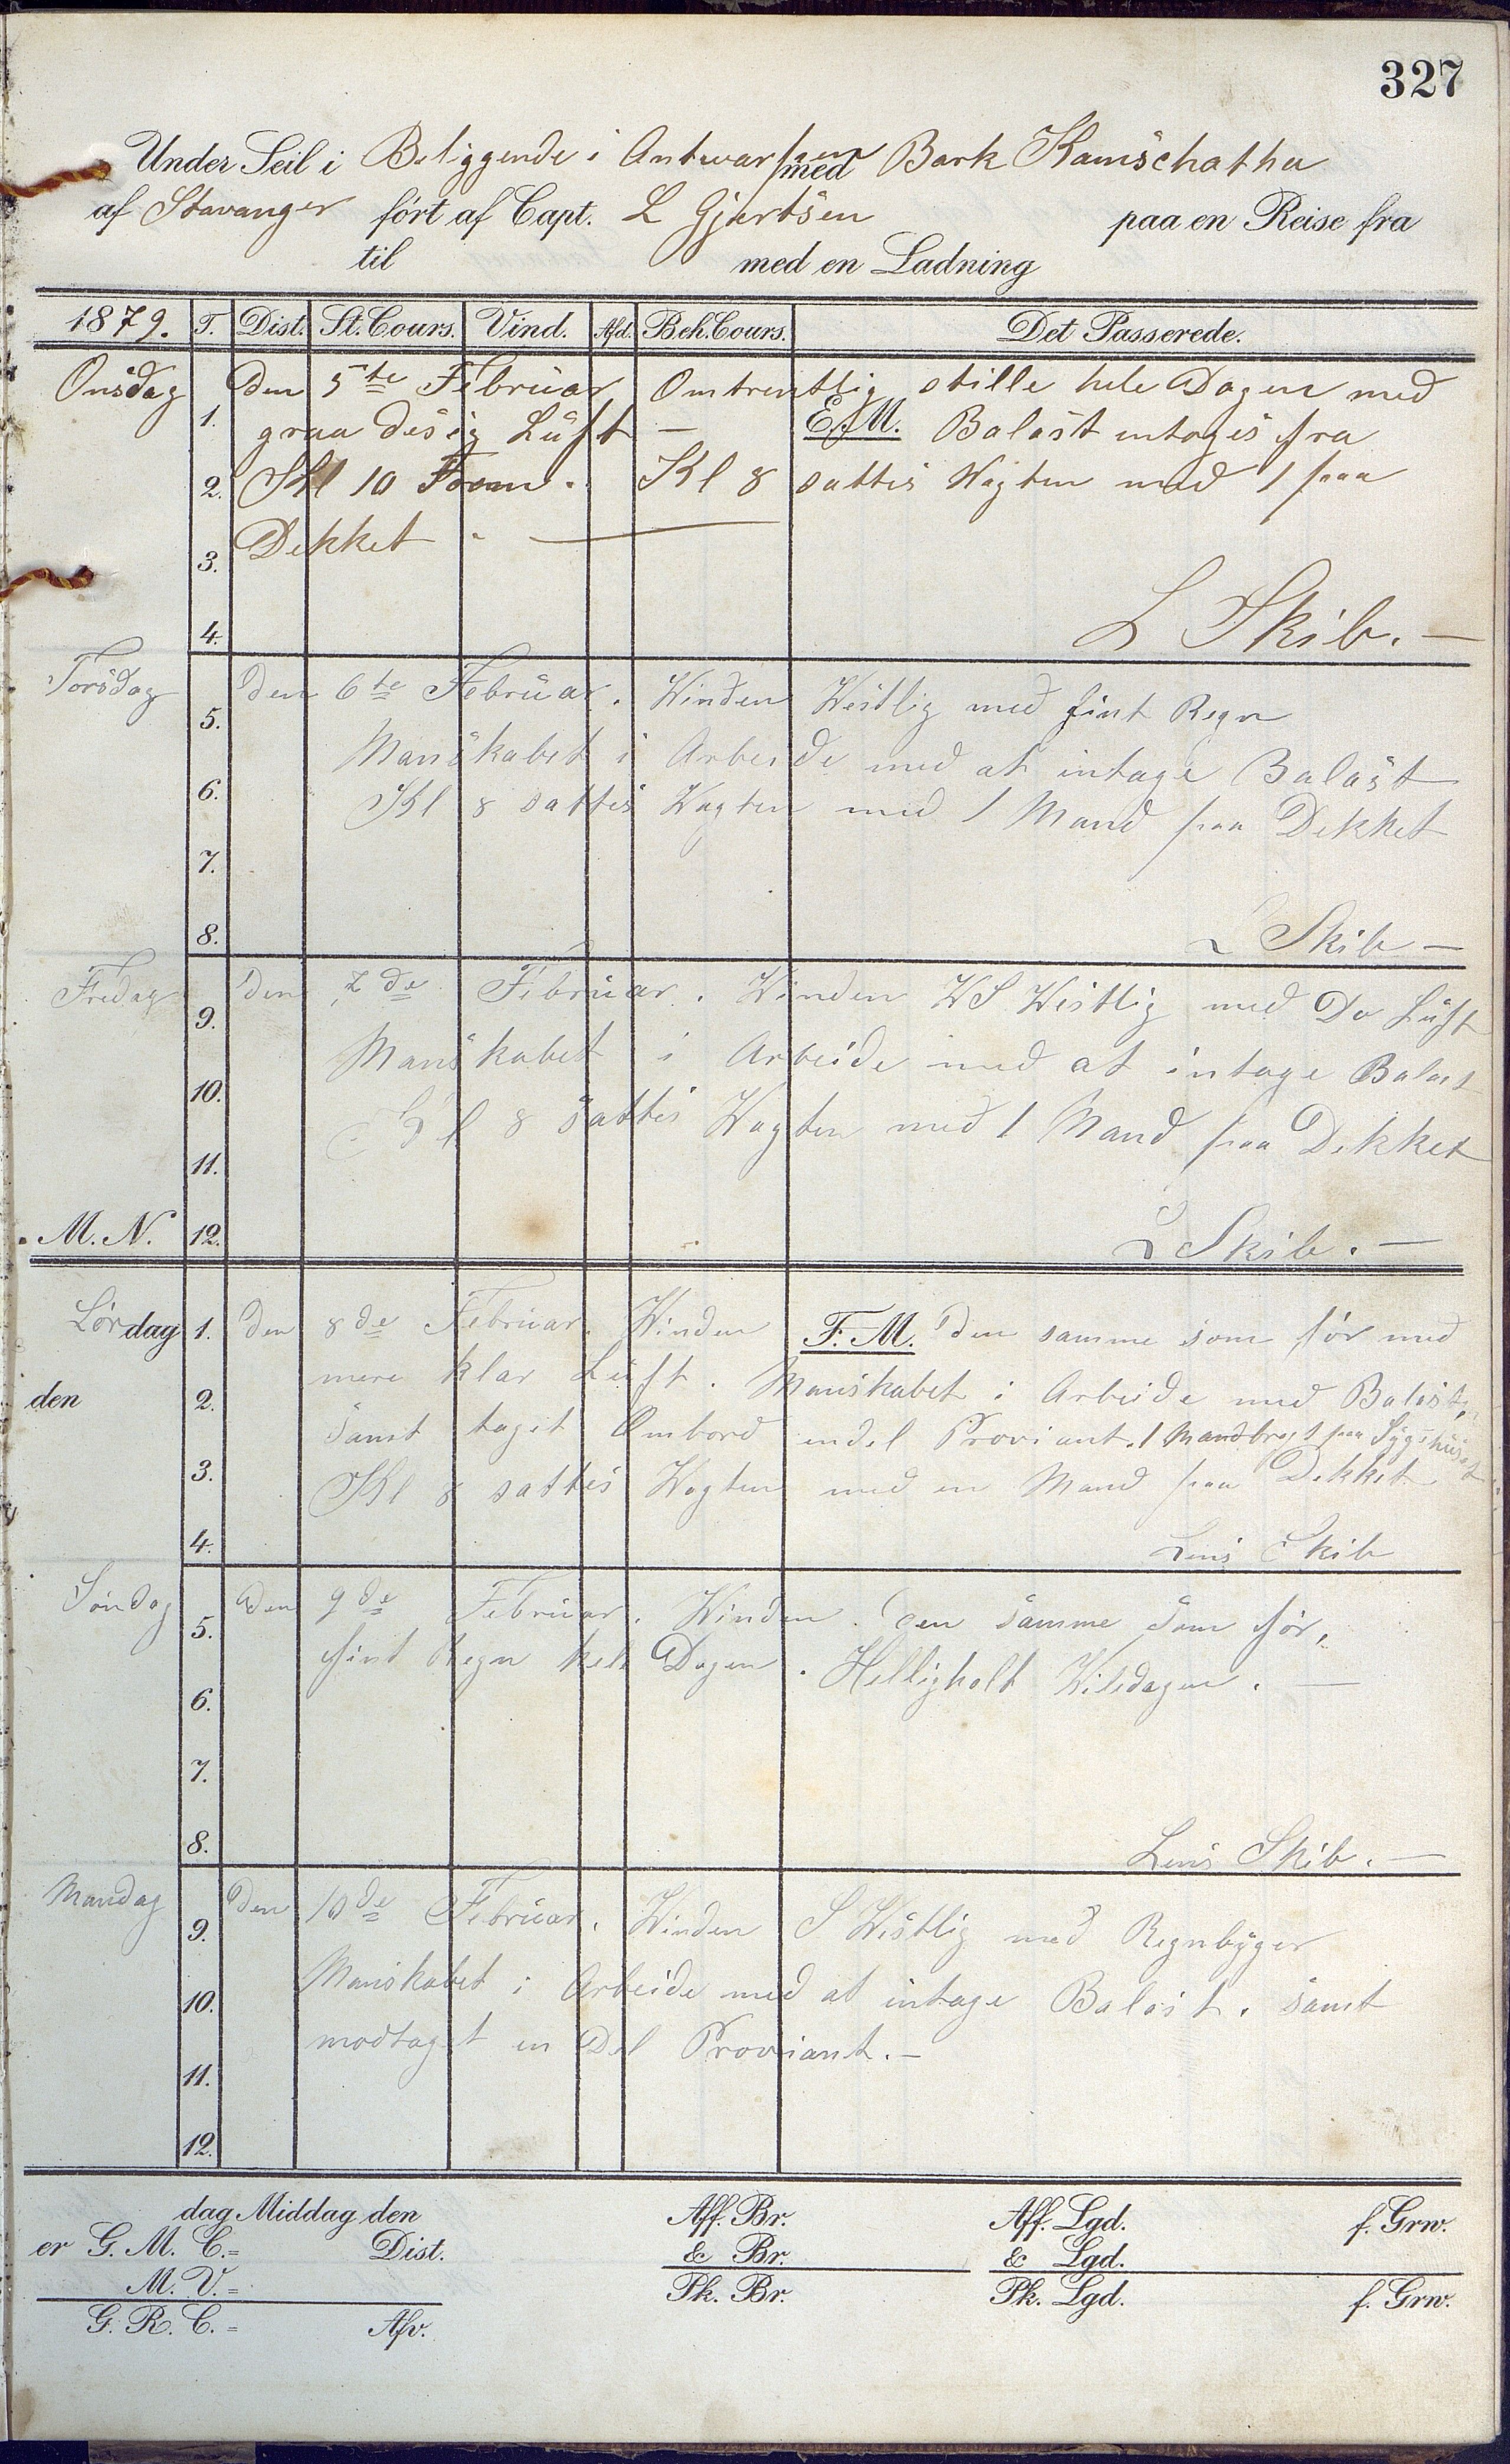 327
Under Seil i Beliggende i Antwarpen med Bark Kamschatka
af Stavanger ført af Capt. L Gjertsen paa en Reise fra
til med en Ladning
1879. T. Dist. St. Cours. Vind. Afd. Beh. Cours. Det Passerede.
Onsdag Den 5te Februar Omtrentlig stille hele Dagen med
1. graa desig Luft — E.M. Balast intoges fra
2. Kl 10 Form. Kl 8 sattes Wagten med 1 paa
3. Dekket . —
4. L Skib. —
Torsdag den 6te Februar. Winden Westlig med fint Regn
5.
Manskabet i Arbeide med at intage Balast
6. Kl 8 sattes Wagten med 1 Mand paa Dekket
7.
8. L Skib —
Fredag den 7de Februar. Winden WS Westlig med Do Luft
9.
Manskabet i Arbeide med at intage Balast
10.
Kl 8 sattes Wagten med 1 Mand paa Dekket
11.
M. N. 12. L Skib. —
Lørdag 1. den 8de Februar. Winden F. M. den samme som før med
mere klar Luft. Manskabet i Arbeide med Balast,
den 2.
samt taget Ombord endel Proviant. 1 Mand bragt paa Sygehuset
3. Kl 8 sattes Wagten med en Mand paa Dekket
4. Lens Skib
Søndag Den 9de Februar. Winden den samme som før,
5.
fint Regn hele Dagen. Helligholt Wiledagen. —
6.
7.
8. Lens Skib. —
Mandag Den 10de Februar. Winden S Westlig med Regnbyger
9.
Manskabet i Arbeide med at intage Balast. samt
10.
modtaget en Del Proviant. —
11.
12.
dag Middag den Aff. Br. Aff. Lgd. f. Grw.
er G. M. C. = Dist. & Br. & Lgd.
M. V. = Pk. Br. Pk. Lgd. f. Grw.
G. R. C. = Afv.